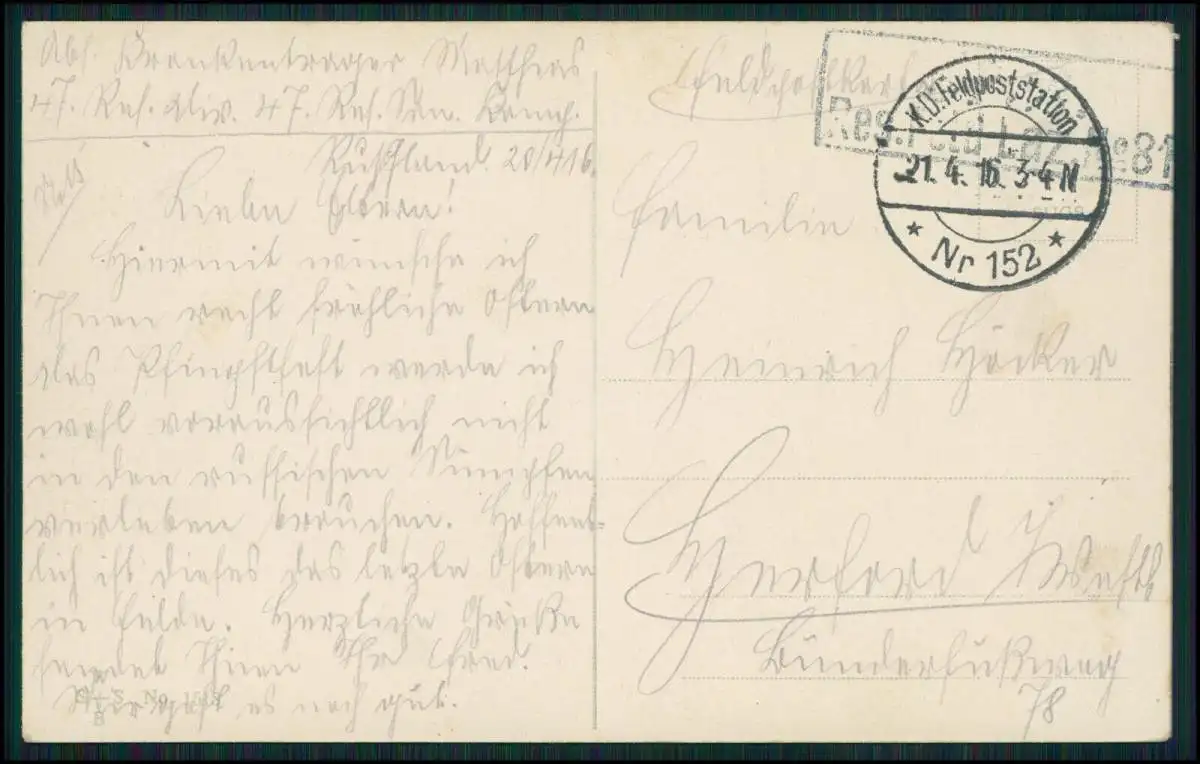 Abs. Krankenträger Matthias
47. Res. Div. 47. Res. San. Komp.
Rußland. 20/4 16.
Liebe Eltern!
Hiermit wünsche ich
Ihnen recht fröhliche Ostern
das Pfingstfest werde ich
wohl voraussichtlich nicht
in den russischen Sümpfen
verleben brauchen. Hoffent-
lich ist dieses das letzte Ostern
im Felde. Herzliche Grüße
sendet Ihnen Ihr Fred.
Mir geht es noch gut.
No.
Feldpostkarte
Res. Feld Laz. No 81
K.D. Feldpoststation
21. 4. 16. 3-4 N
* Nr 152 *
Familie
Heinrich Höcker
Herford i/Westf
Bünderfußweg
78